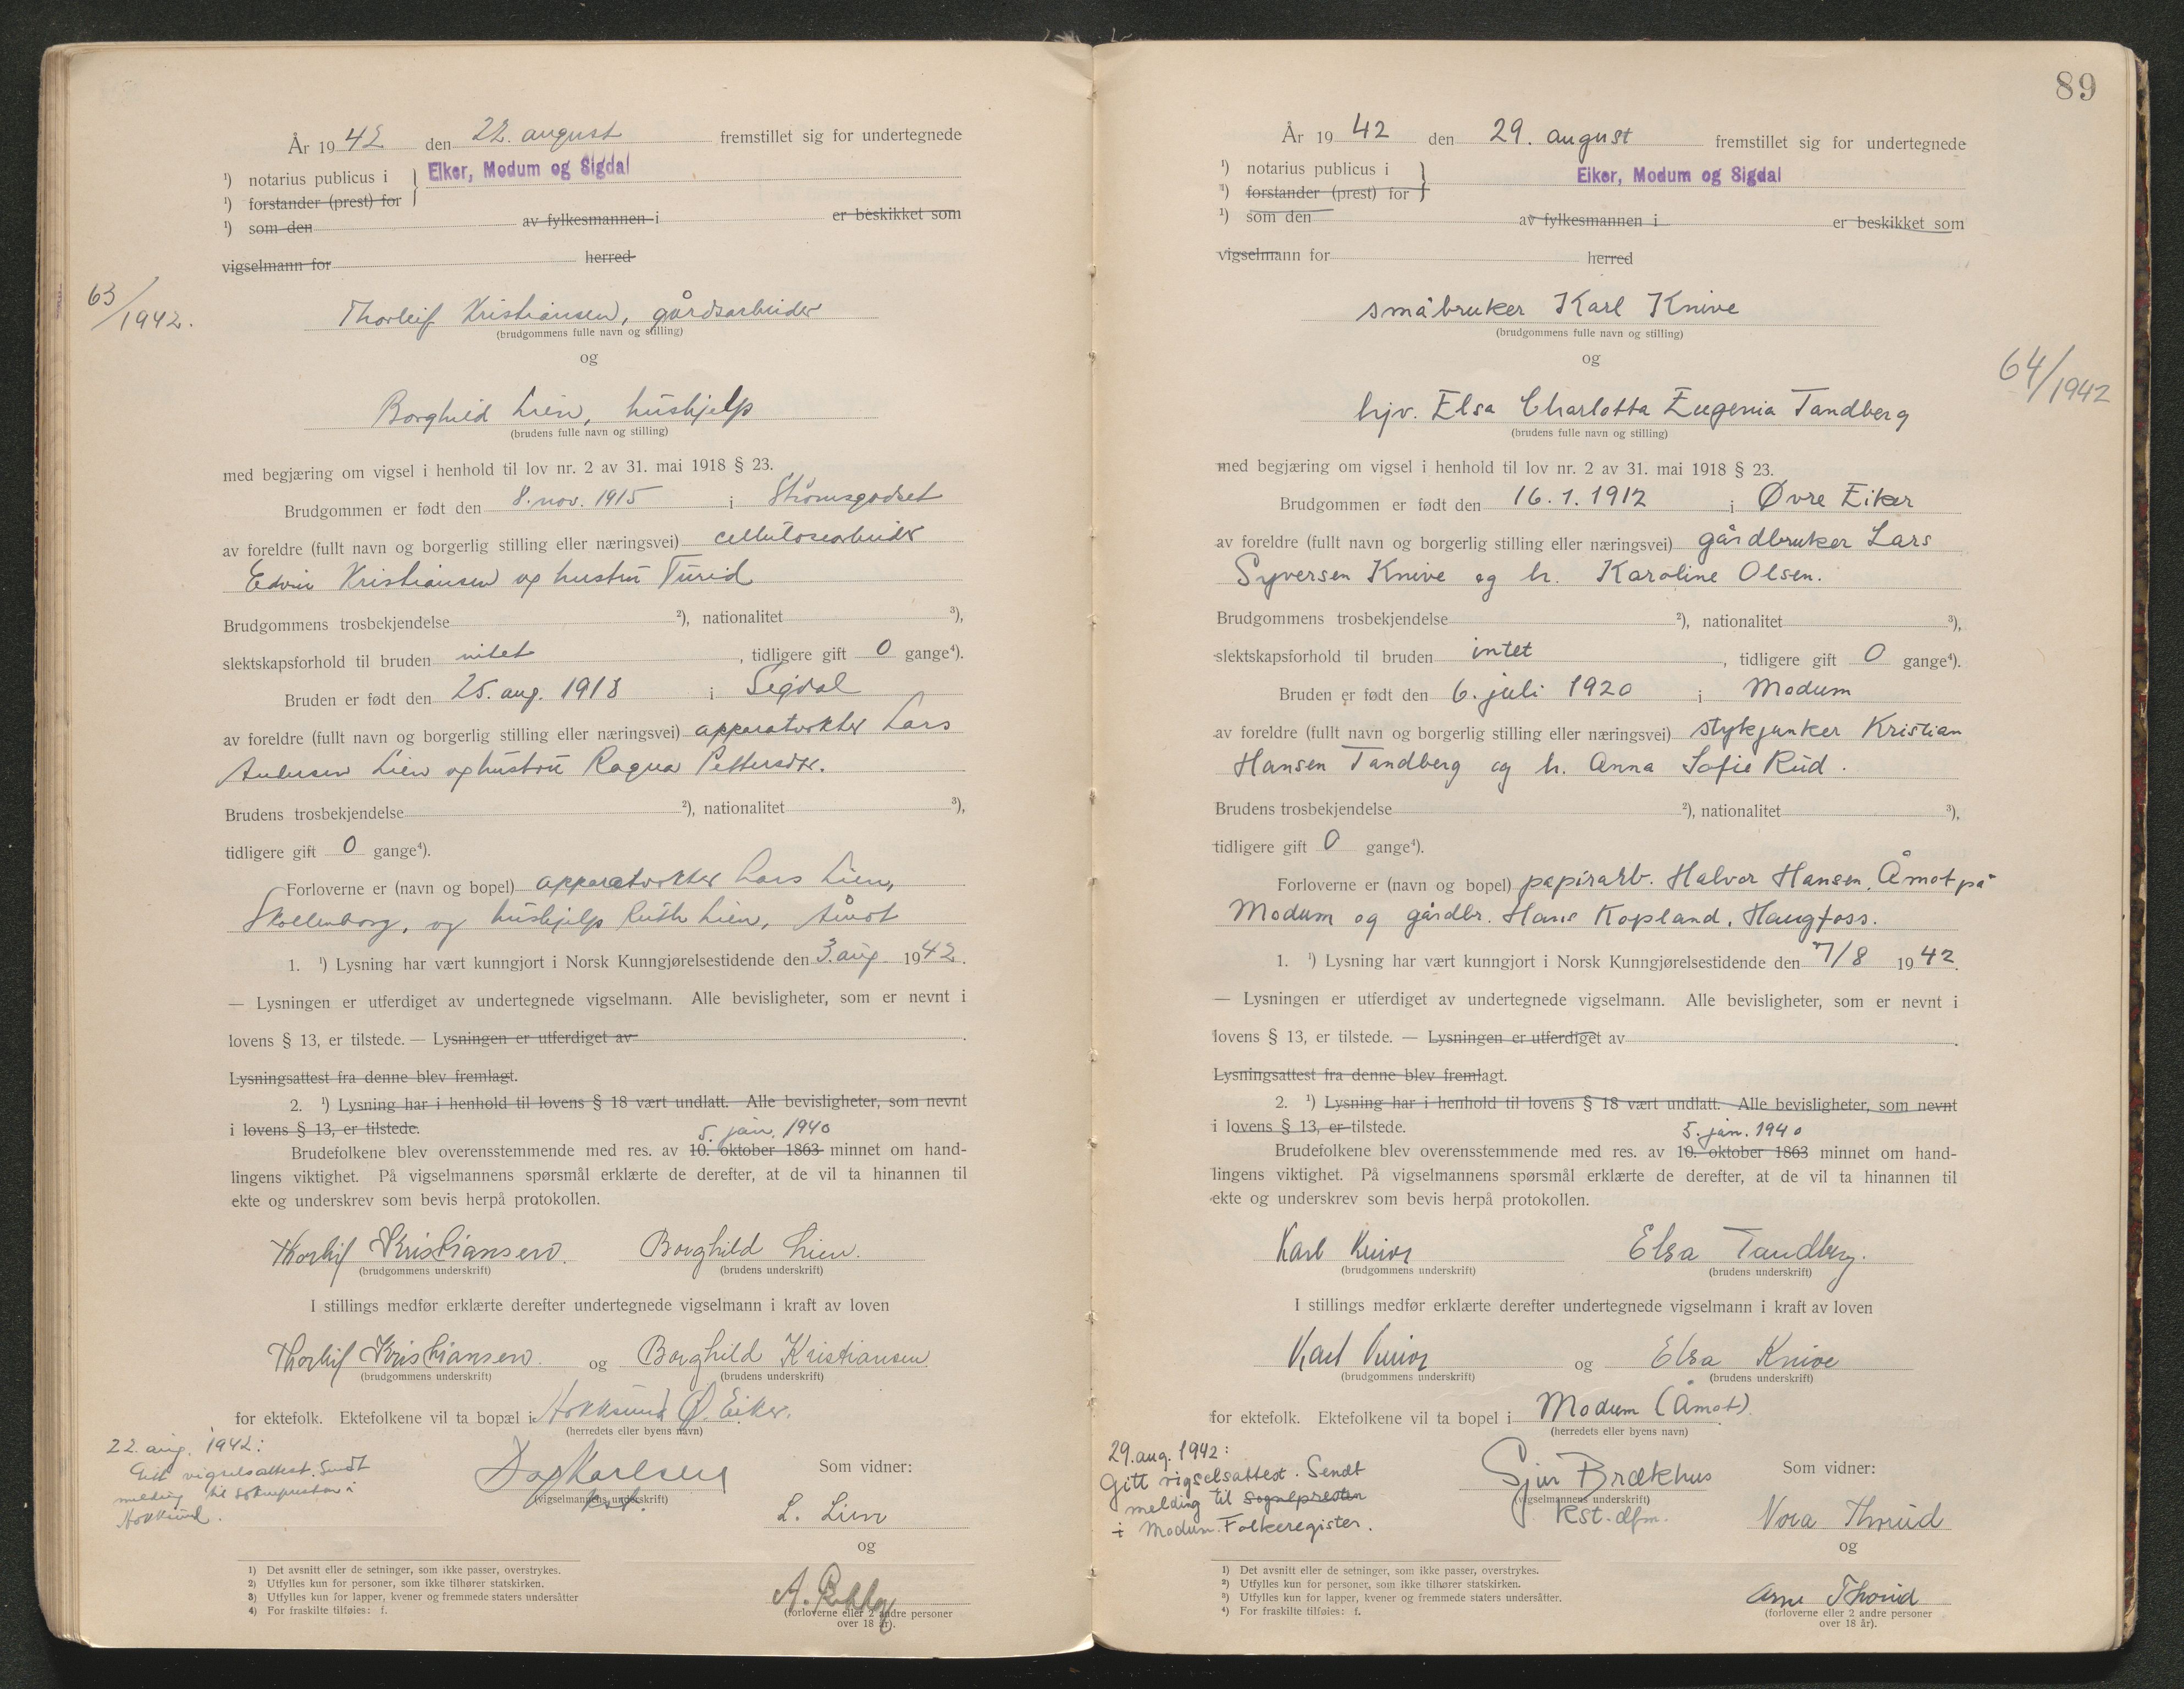 År 1942 den 22. august fremstillet sig for undertegnede
¹) notarius publicus i } Eiker, Modum og Sigdal
¹) forstander (prest) for
¹) som den av fylkesmannen i er beskikket som
vigselmann for herred
63/1942.
Thorleif Kristiansen, gårdsarbeider
(brudgommens fulle navn og stilling)
og
Borghild Lien, hushjelp
(brudens fulle navn og stilling)
med begjæring om vigsel i henhold til lov nr. 2 av 31. mai 1918 § 23.
Brudgommen er født den 8. nov. 1915 i Strømsgodset
av foreldre (fullt navn og borgerlig stilling eller næringsvei) cellulosearbeider
Edvin Kristiansen og hustru Turid
Brudgommens trosbekjendelse ²), nationalitet ³),
slektskapsforhold til bruden intet, tidligere gift 0 gange⁴).
Bruden er født den 25. aug. 1918 i Sigdal
av foreldre (fullt navn og borgerlig stilling eller næringsvei) Lars
Andersen Lien og hustru Ragna
Brudens trosbekjendelse ²), nationalitet ³),
tidligere gift 0 gange⁴).
Forloverne er (navn og bopel) Lars Lien,
Skollenborg, og hushjelp Ruth Lien, Åmot
1. ¹) Lysning har vært kunngjort i Norsk Kunngjørelsestidende den 3. aug 1942.
— Lysningen er utferdiget av undertegnede vigselmann. Alle bevisligheter, som er nevnt i
lovens § 13, er tilstede. — Lysningen er utferdiget av .
Lysningsattest fra denne blev fremlagt.
2. ¹) Lysning har i henhold til lovens § 18 vært undlatt. Alle bevisligheter, som nevnt
i lovens § 13, er tilstede.
5. jan. 1940
Brudefolkene blev overensstemmende med res. av 10. oktober 1863 minnet om hand-
lingens viktighet. På vigselmannens spørsmål erklærte de derefter, at de vil ta hinannen til
ekte og underskrev som bevis herpå protokollen.
Thorleif Kristiansen. Borghild Lien.
(brudgommens underskrift) (brudens underskrift)
I stillings medfør erklærte derefter undertegnede vigselmann i kraft av loven
Thorleif Kristiansen. og Borghild Kristiansen
(brudgommens underskrift) (brudens underskrift)
for ektefolk. Ektefolkene vil ta bopæl i Hokksund Ø. Eiker.
(herredets eller byens navn)
22. aug. 1942:
Gitt vigselsattest. Sendt
melding til soknepresten i
Hokksund.
Dag Karlsen
(vigselmannens underskrift)
kst.
Som vidner:
L. Lien
og
(forloverne eller 2 andre personer
over 18 år).
1) Det avsnitt eller de setninger, som ikke passer, overstrykes.
2) Utfylles kun for personer, som ikke tilhører statskirken.
3) Utfylles kun for lapper, kvener og fremmede staters undersåtter
4) For fraskilte tilføies: f.
89
År 1942 den 29. august fremstillet sig for undertegnede
¹) notarius publicus i } Eiker, Modum og Sigdal
¹) forstander (prest) for
¹) som den av fylkesmannen i er beskikket som
vigselmann for herred
småbruker Karl Knive
(brudgommens fulle navn og stilling)
og
64/1942
hjv. Elsa Charlotta Eugenia Tandberg
(brudens fulle navn og stilling)
med begjæring om vigsel i henhold til lov nr. 2 av 31. mai 1918 § 23.
Brudgommen er født den 16. 1. 1912 i Øvre Eiker
av foreldre (fullt navn og borgerlig stilling eller næringsvei) gårdbruker Lars
Syversen Knive og h. Karoline Olsen.
Brudgommens trosbekjendelse ²), nationalitet ³),
slektskapsforhold til bruden intet, tidligere gift 0 gange⁴).
Bruden er født den 6. juli 1920 i Modum
av foreldre (fullt navn og borgerlig stilling eller næringsvei) stykjunker Kristian
Hansen Tandberg og h. Anna Sofie Rud.
Brudens trosbekjendelse ²), nationalitet ³),
tidligere gift 0 gange⁴).
Forloverne er (navn og bopel) papirarb. Halvor Hansen, Åmot på
Modum og gårdbr. Hans Kopland, Haugfoss.
1. ¹) Lysning har vært kunngjort i Norsk Kunngjørelsestidende den 7/8 1942.
— Lysningen er utferdiget av undertegnede vigselmann. Alle bevisligheter, som er nevnt i
lovens § 13, er tilstede. — Lysningen er utferdiget av .
Lysningsattest fra denne blev fremlagt.
2. ¹) Lysning har i henhold til lovens § 18 vært undlatt. Alle bevisligheter, som nevnt
i lovens § 13, er tilstede.
5. jan. 1940
Brudefolkene blev overensstemmende med res. av 10. oktober 1863 minnet om hand-
lingens viktighet. På vigselmannens spørsmål erklærte de derefter, at de vil ta hinannen til
ekte og underskrev som bevis herpå protokollen.
Karl Knive Elsa Tandberg.
(brudgommens underskrift) (brudens underskrift)
I stillings medfør erklærte derefter undertegnede vigselmann i kraft av loven
Karl Knive og Elsa Knive
(brudgommens underskrift) (brudens underskrift)
for ektefolk. Ektefolkene vil ta bopel i Modum (Åmot).
(herredets eller byens navn)
29. aug. 1942:
Gitt vigselsattest. Sendt
melding til sognepresten
i Modum. Folkeregister.
Sjur Brækhus
(vigselmannens underskrift)
kst. dfm.
Som vidner:
Nora Thorud
og
Arne Thorud
(forloverne eller 2 andre personer
over 18 år).
1) Det avsnitt eller de setninger, som ikke passer, overstrykes.
2) Utfylles kun for personer, som ikke tilhører statskirken.
3) Utfylles kun for lapper, kvener og fremmede staters undersåtter.
4) For fraskilte tilføies: f.